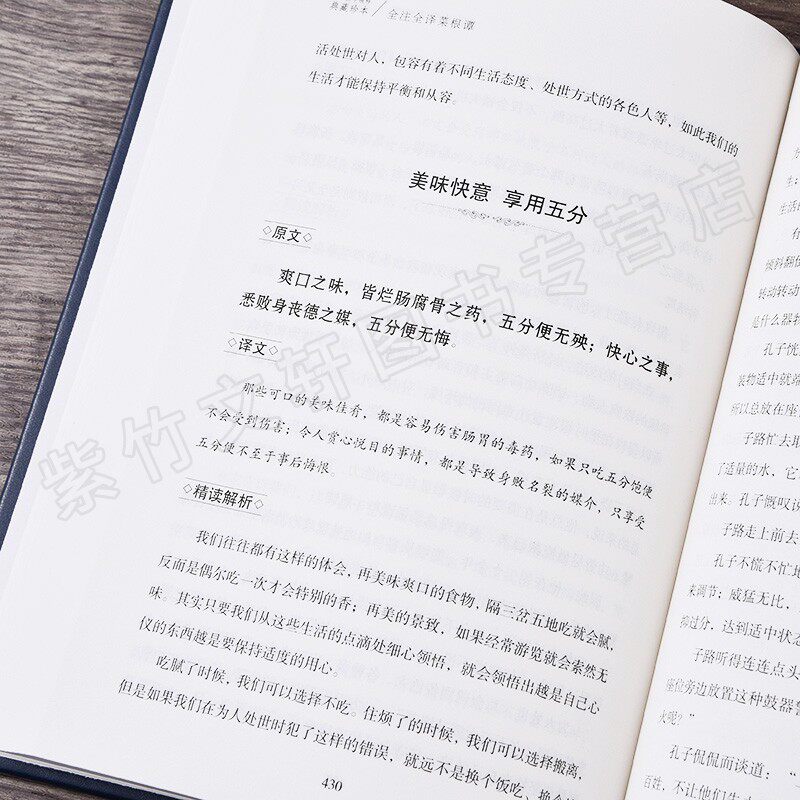 典藏珍本 / 全注全译菜根谭
活处世对人，包容有着不同生活态度、处世方式的各色人等，如此我们的
生活才能保持平衡和从容。
美味快意 享用五分
◇原文◇
爽口之味，皆烂肠腐骨之药，五分便无殃；快心之事，
悉败身丧德之媒，五分便无悔。
◇译文◇
那些可口的美味佳肴，都是容易伤害肠胃的毒药，如果只吃五分饱便
不会受到伤害；令人赏心悦目的事情，都是导致身败名裂的媒介，只享受
五分便不至于事后悔恨。
◇精读解析◇
我们往往都有这样的体会，再美味爽口的食物，隔三岔五地吃就会腻，
反而是偶尔吃一次才会特别的香；再美的景致，如果经常游览就会索然无
味。其实只要我们从这些生活的点滴处细心领悟，就会领悟出越是自己心
仪的东西越是要保持适度的用心。
吃腻了时候，我们可以选择不吃。住烦了的时候，我们可以选择搬离，
但是如果我们在为人处世时犯了这样的错误，就远不是换个饭吃、换个
430
生活的
有
倾斜翻倒
转动转动
是什么器物
孔子恍
装物适中就端
所以总放在座
子路忙去取
了适量的水，它
出来。孔子慨叹说
子路走上前去
孔子不慌不忙地
来调节；威猛无比，
抑过分，达到适中状态
子路听得连连点头
座位旁边放置这种敧器警
火呢？”
孔子侃侃而谈道：“
百姓，不让他们生
紫竹文轩图书专营店